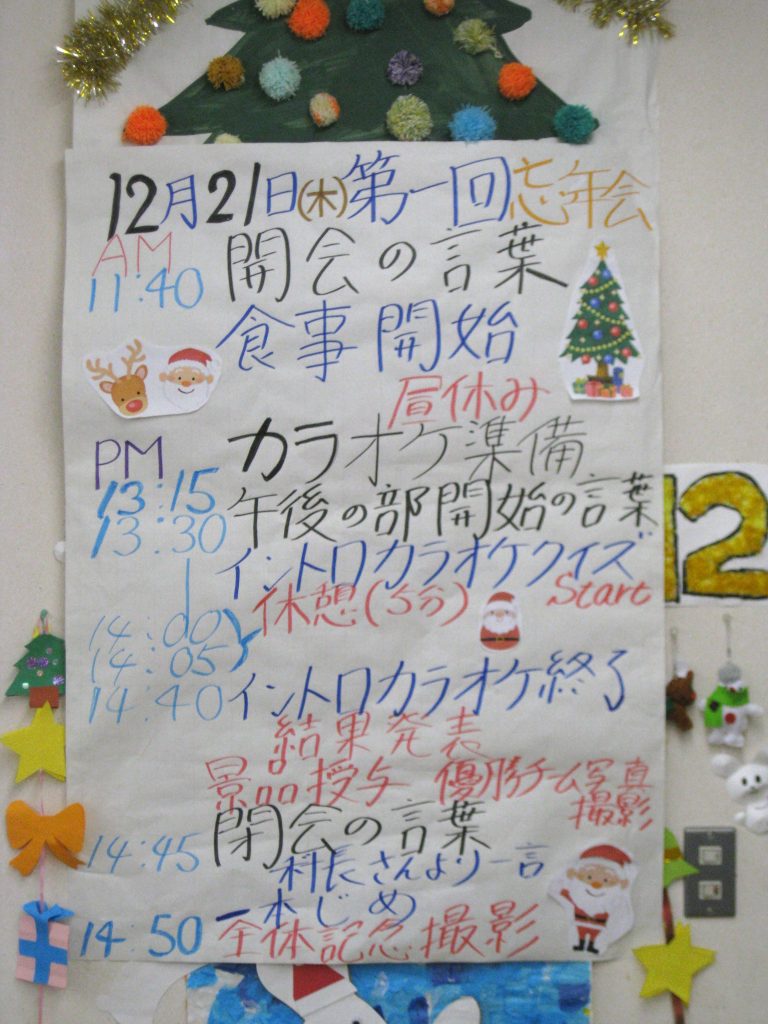 12月21日(木)第一回忘年会
AM
11:40 開会の言葉
食事開始
昼休み
PM
カラオケ準備
13:15
13:30 午後の部開始の言葉
イントロカラオケクイズ
Start
14:00 休憩(5分)
14:05
14:40 イントロカラオケ終了
結果発表
景品授与 優勝チーム写真
撮影
14:45 閉会の言葉
村長さんより一言
一本じめ
14:50 全体記念撮影
12